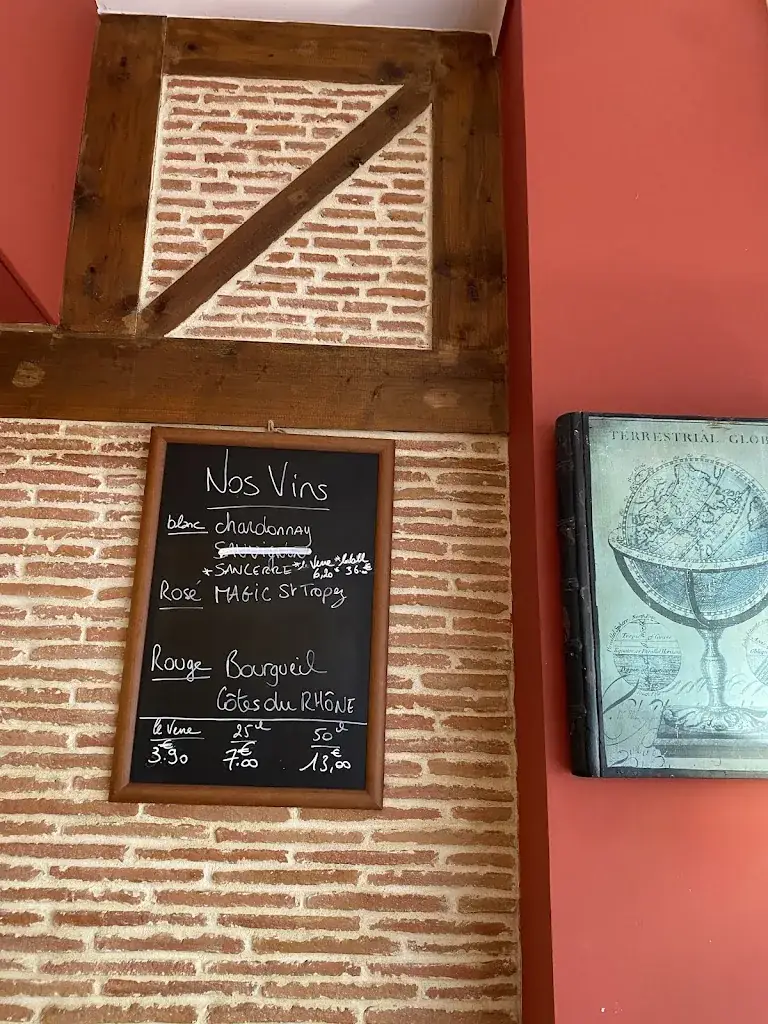 Nos Vins
blanc chardonnay
* SANCERRE * le Verre * 
6,20 € 36.00€
Rosé MAGIC St Tropez
Rouge Bourgueil
Côtes du RHÔNE
le Verre 25cl 50cl
3.€90 7.€00 13,€00
TERRESTRIAL GLOB